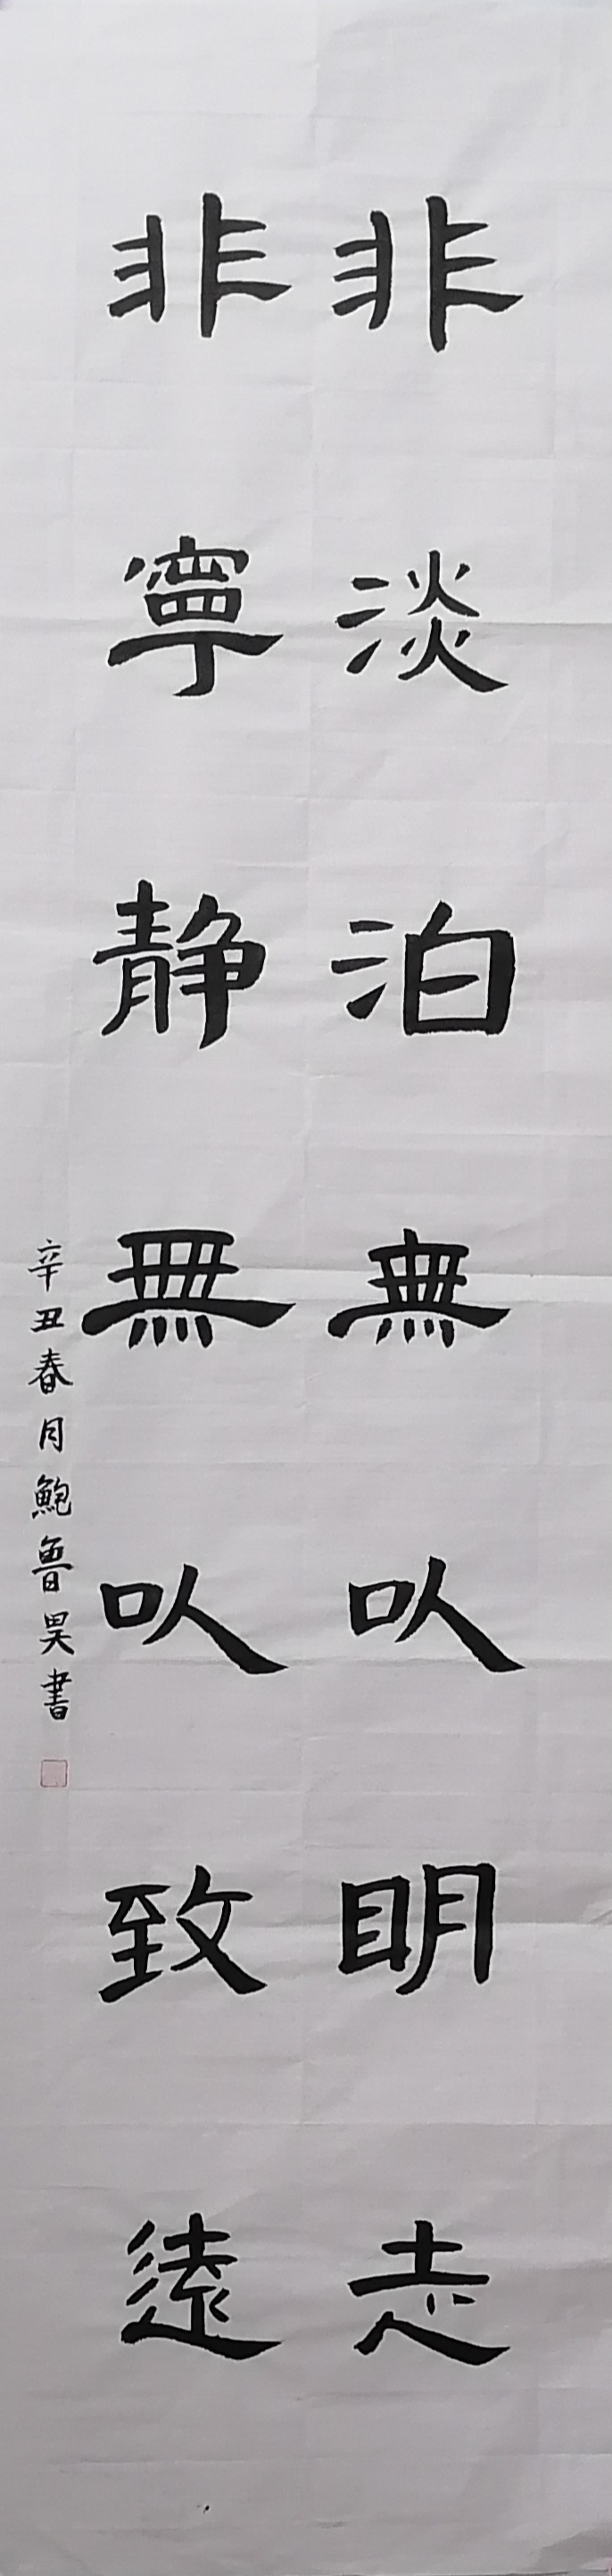 非淡泊無以明志
非寧静無以致遠
辛丑春月鮑魯昊書